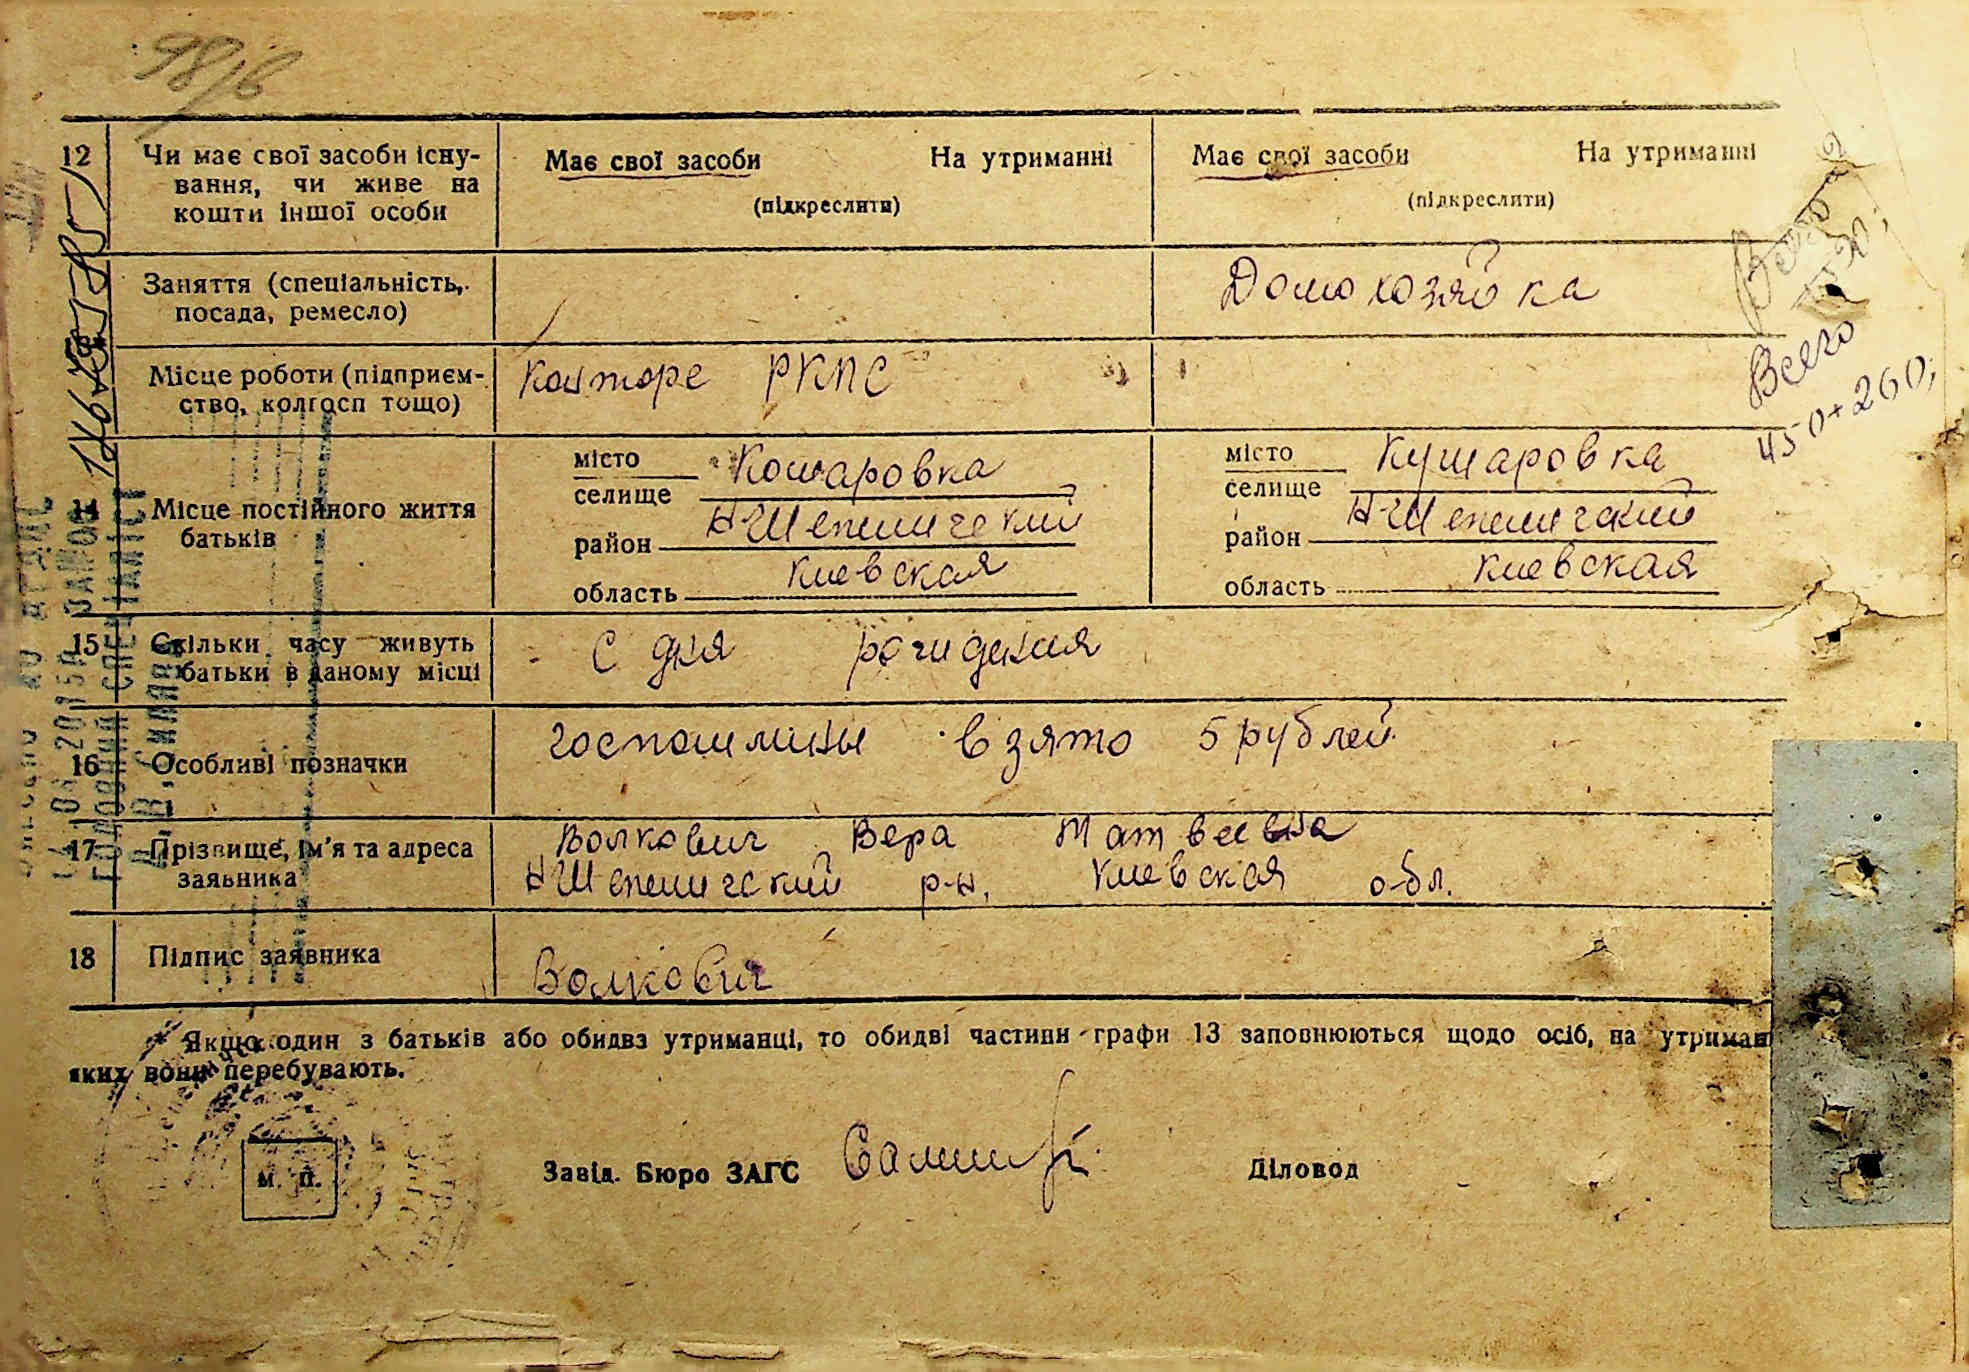 98/в
12 Чи має свої засоби існу- Має свої засоби На утриманні Має свої засоби На утриманні
вання, чи живе на
кошти іншої особи (підкреслити) (підкреслити)
Заняття (спеціальність, Домохозяйка
посада, ремесло)
Місце роботи (підприєм- Конторе РКПС
ство, колгосп тощо)
14 Місце постійного життя
батьків
місто Кошаровка місто Кушаровка
селище селище
район Н-Шепеличский район Н-Шепеличский
область Киевская область Киевская
15 Скільки часу живуть С дня рождения
батьки в даному місці
16 Особливі позначки госпошлины взято 5 рублей
17 Прізвище, ім'я та адреса Волкович Вера Матвеевна
заявника Н-Шепеличский р-н. Киевская обл.
18 Підпис заявника Волкович
Якщо один з батьків або обидва утриманці, то обидві частини графи 13 заповнюються щодо осіб, на утриман
яких вони перебувають.
М. П. Завід. Бюро ЗАГС Діловод
Всего
Всего
450+260,